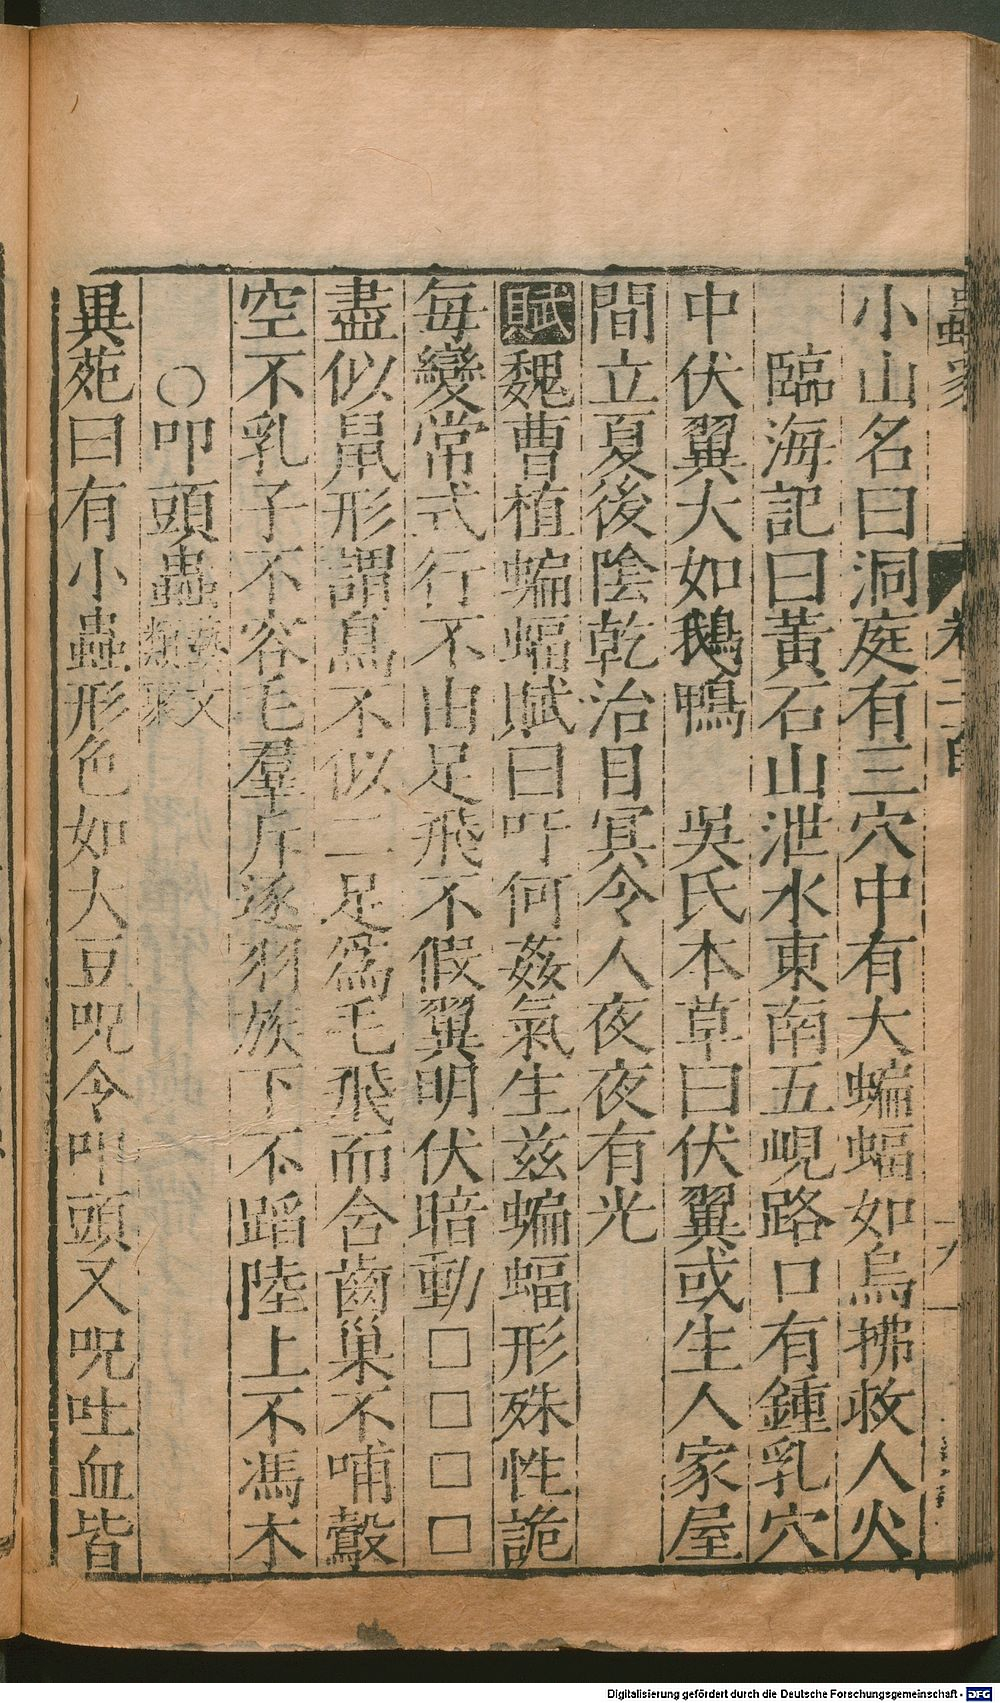 小山名曰洞庭有三穴中有大蝙蝠如烏拂救人火
臨海記曰黃石山泄水東南五峴路口有鍾乳穴
中伏翼大如鵝鴨　吳氏本草曰伏翼或生人家屋
間立夏後陰乾治目冥令人夜夜有光
賦魏曹植蝙蝠賦曰吁何姦氣生茲蝙蝠形殊性詭
每變常式行不由足飛不假翼明伏暗動□□□□
盡似鼠形謂鳥不似二足爲毛飛而含齒巢不哺鷇
空不乳子不容毛羣斥逐羽族下不蹈陸上不馮木
○叩頭蟲
異苑曰有小蟲形色如大豆呪令叩頭又呪吐血皆
Digitalisierung gefördert durch die Deutsche Forschungsgemeinschaft - DFG